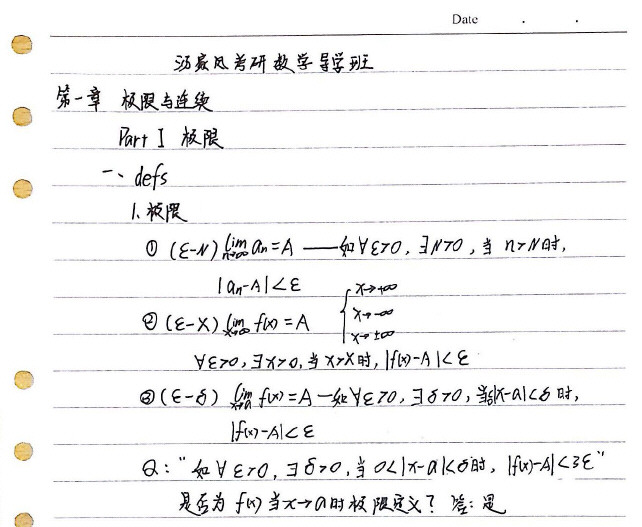 Date . .
汤家凤考研数学导学班
第一章 极限与连续
Part I 极限
一、defs
1. 极限
① (ε-N) lim n→∞ an=A ——如∀ε>0, ∃N>0, 当 n>N时,
|an-A|<ε
② (ε-X) lim x→∞ f(x)=A { x→+∞ x→-∞ x→±∞
∀ε>0, ∃X>0, 当x>X时, |f(x)-A|<ε
③ (ε-δ) lim x→a f(x)=A —如∀ε>0, ∃δ>0, 当|x-a|<δ时,
|f(x)-A|<ε
Q: "如∀ε>0, ∃δ>0, 当0<|x-a|<δ时, |f(x)-A|<3ε"
是否为f(x)当x→a时极限定义? 答: 是